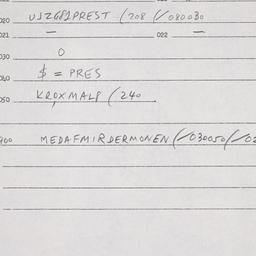 020 UJZG81PREST (208 (/080030
021 — 022 —
030 0
040 $ = PRES
050 KROXMALP (240
400 MEDAFMIRDERMONEN (/030050/02